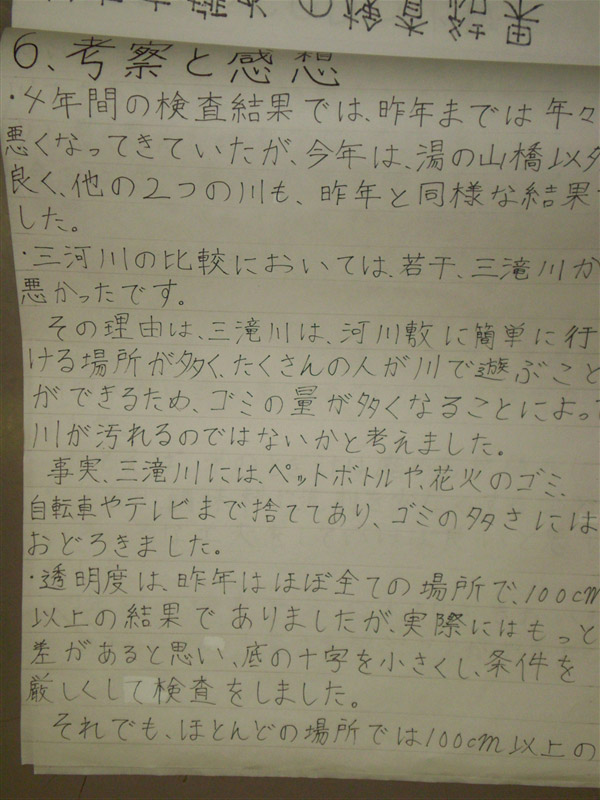 の検査結果
6、考察と感想
・4年間の検査結果では、昨年までは年々
悪くなってきていたが、今年は、湯の山橋以外
良く、他の2つの川も、昨年と同様な結果で
した。
・三河川の比較においては、若干、三滝川が
悪かったです。
その理由は、三滝川は、河川敷に簡単に行
ける場所が多く、たくさんの人が川で遊ぶこと
ができるため、ゴミの量が多くなることによって
川が汚れるのではないかと考えました。
事実、三滝川には、ペットボトルや、花火のゴミ、
自転車やテレビまで捨ててあり、ゴミの多さには
おどろきました。
・透明度は、昨年はほぼ全ての場所で、100cm
以上の結果でありましたが、実際にはもっと
差があると思い、底の十字を小さくし、条件を
厳しくして検査をしました。
それでも、ほとんどの場所では100cm以上の